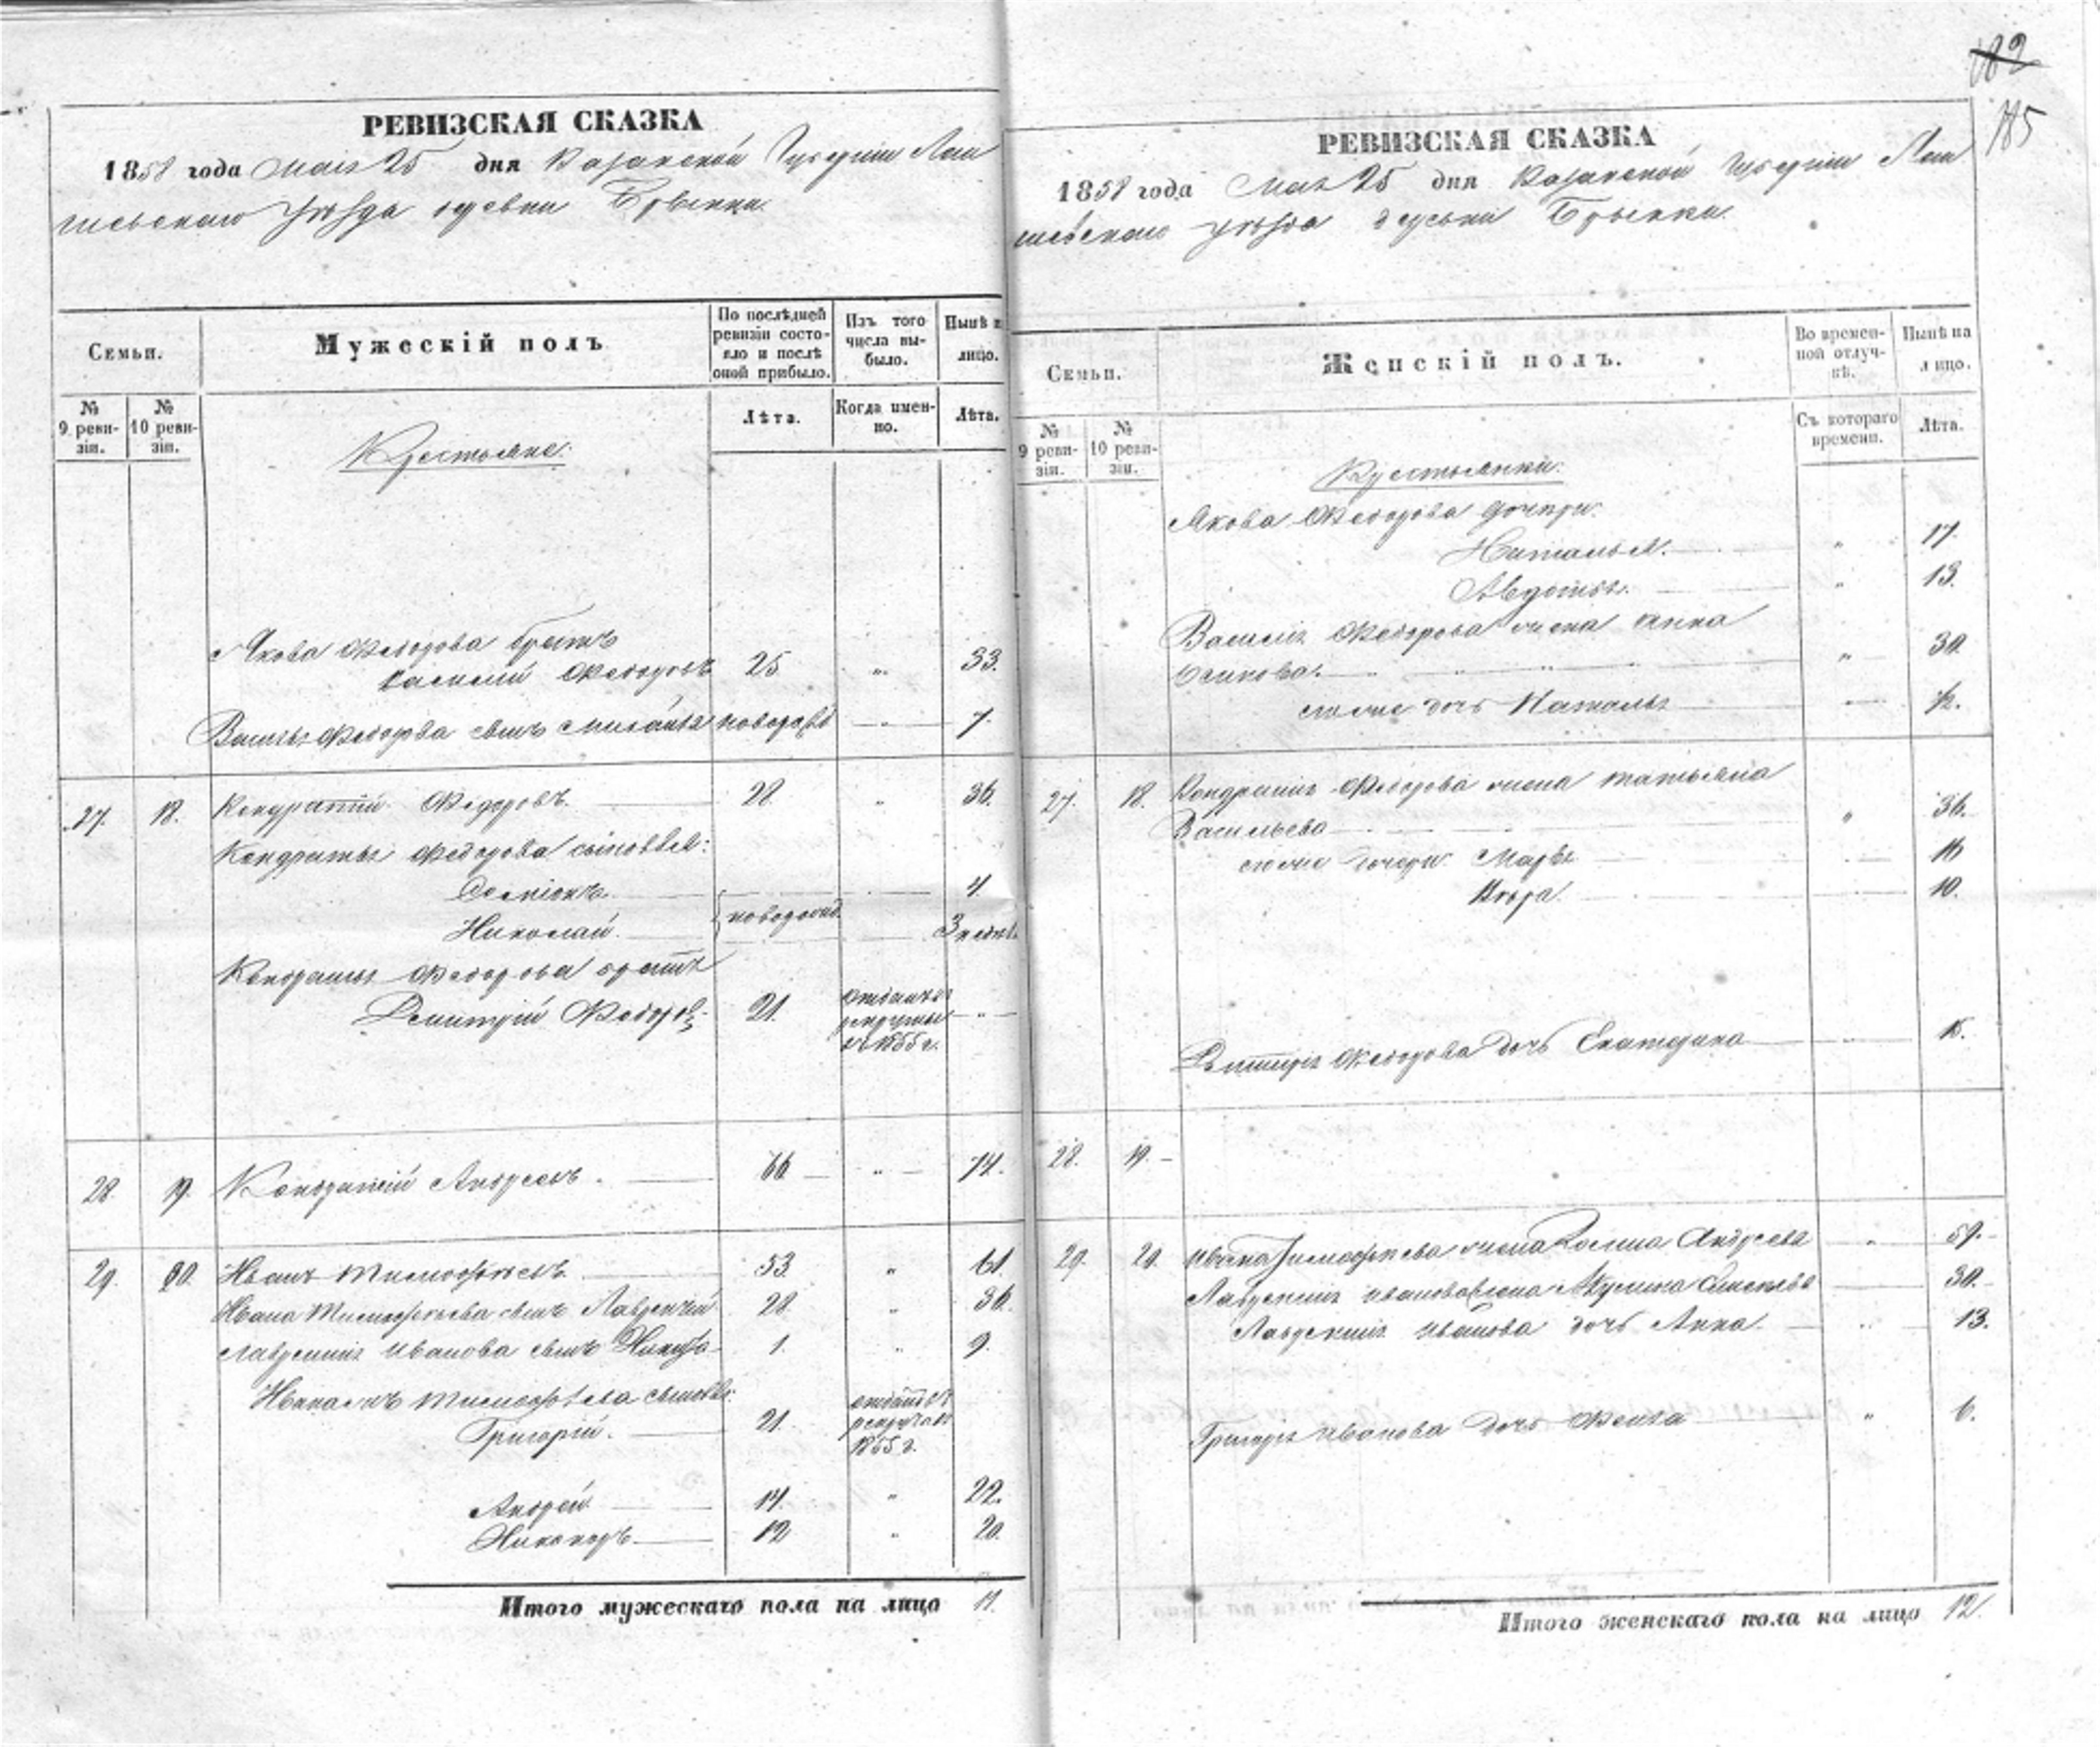 182
185
РЕВИЗСКАЯ СКАЗКА
1858 года Мая 25 дня Казанской Губернии Лаи
шевскаго уѣзда деревни Брысики
Семьи.
Мужескій полъ
По послѣдней ревизіи состояло и послѣ оной прибыло.
Изъ того числа выбыло.
Нынѣ на лицо.
№ 9 ревизіи.
№ 10 ревизіи.
Лѣта.
Когда именно.
Лѣта.
Крестьяне:
Якова Федорова братъ
Василій Федоровъ 25 „ 33.
Василья Федорова сынъ Михайла новорожд 7.
27. 18. Кондратій Федоровъ. 28 „ 36.
Кондратья Федорова сыновья:
Семіонъ. 4.
Николай. новорожд. 3 недѣл.
Кондратья Федорова братъ
Дмитрій Федоров. 21. отданъ въ рекруты въ 1855 г. „
28 19. Кондратій Андреевъ. 66 „ 74.
29. 20. Иванъ Тимофѣевъ 53 „ 61.
Ивана Тимофѣева сынъ Лаврентій 28 „ 36.
Лаврентія Иванова сынъ 1. „ 9.
Ивана Тимофѣева сыновья:
Григорій. 21. отданъ въ рекруты въ 1855 г.
Андрей 14. „ 22.
Никоноръ 12 „ 20.
Итого мужескаго пола на лицо 11.
РЕВИЗСКАЯ СКАЗКА
1858 года Мая 25 дня Казанской Губерніи Лаи
шевскаго уѣзда деревни Брысики
Семьи.
Женскій полъ.
Во временной отлучкѣ.
Нынѣ на лицо.
№ 9 ревизіи.
№ 10 ревизіи.
Съ котораго времени.
Лѣта.
Крестьянки:
Якова Федорова дочери:
Наталья. „ 17.
Авдотья. „ 13.
Василья Федорова жена Анна
Осипова. „ 30.
ихже дочь Наталья 12.
27. 18. Кондратья Федорова жена Татьяна
Васильева „ 36.
ихже дочери Марья 16
10.
Дмитрія Федорова дочь Екатерина 15.
28. 19.
29. 20. Ивана Тимофѣева жена Андреева „ 59.
Лаврентія Иванова жена Акулина 30.
Лаврентія Иванова дочь Анна 13.
Григорія Иванова дочь „ 6.
Итого женскаго пола на лицо 12.